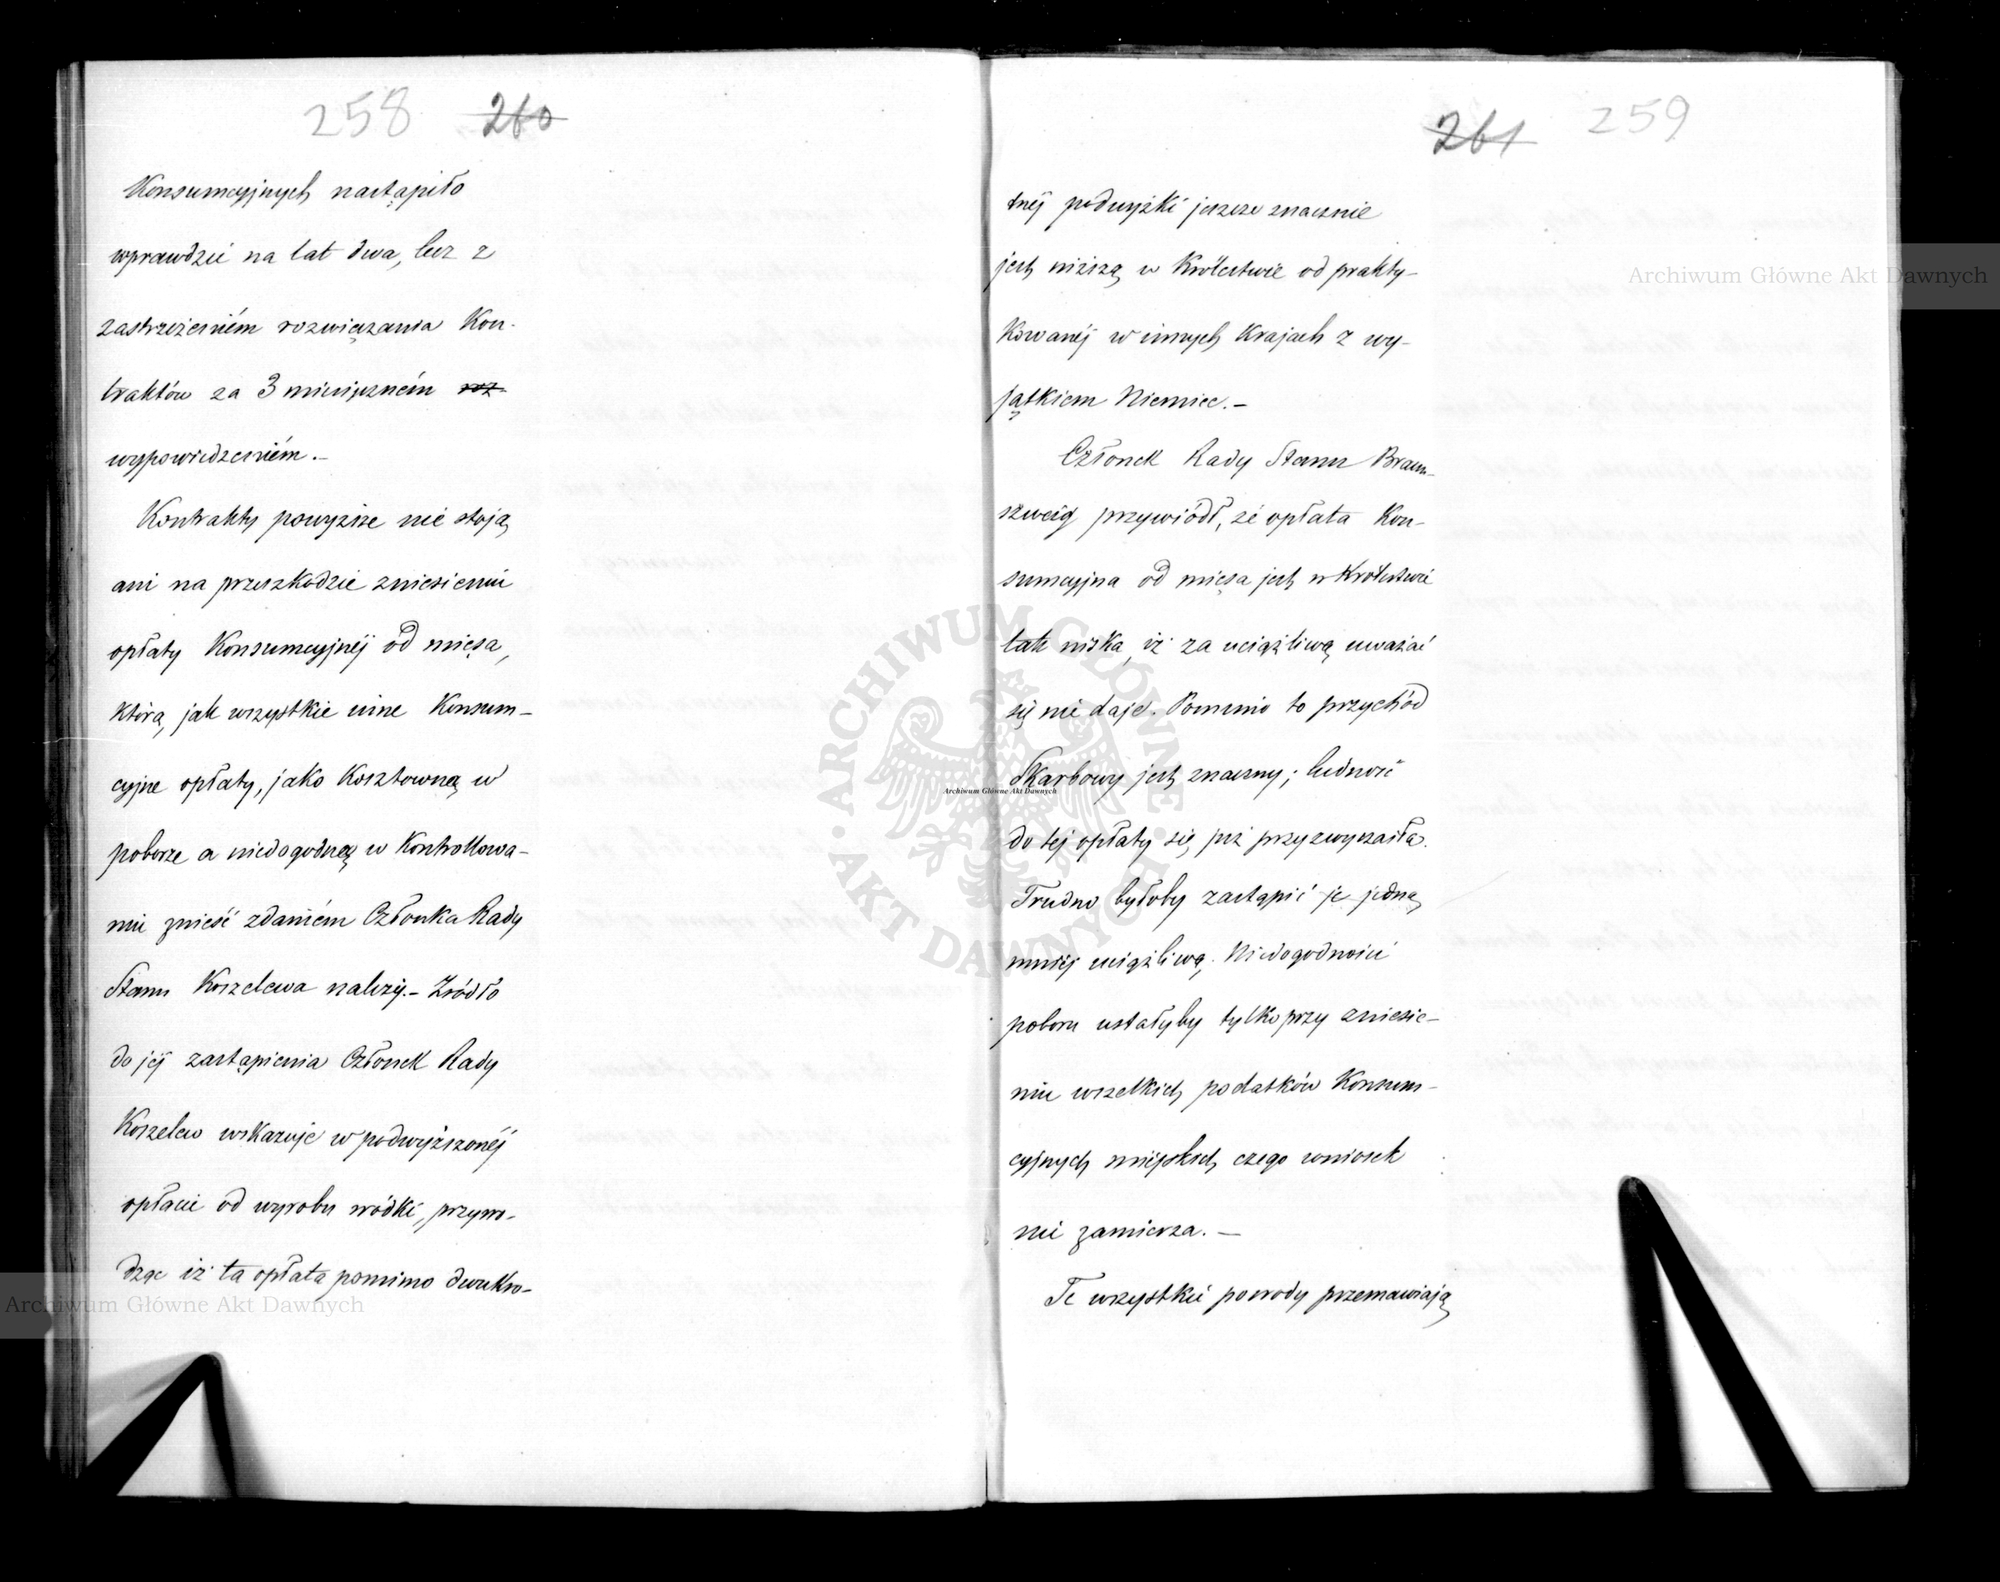 258 260
Konsumcyjnych nastąpiło
wprawdzie na lat dwa, lecz z
zastrzeżeniem rozwiązania Kon-
traktów za 3 miesięczném roz-
wypowiedzeniém.-
Kontrakty powyższe nie stoją
ani na przeszkodzie zniesieniu
opłaty Konsumcyjnéj od mięsa,
którą, jak wszystkie inne Konsum-
cyjne opłaty, jako Kosztowną w
poborze a niedogodną w Kontrollowa-
niu znieść zdaniem Członka Rady
Stanu Koszelewa należy.- Zródło
do jéj zastąpienia Członek Rady
Koszelew wskazuje w podwyższonéj
opłacie od wyrobu wódki, przywo-
dząc iż ta opłata pomimo dwukro-
261 259
tnéj podwyżki jeszcze znacznie
jest niższą w Królestwie od prakty-
Kowanéj w innych Krajach z wy-
jątkiem Niemiec.-
Członek Rady Stanu Braun-
szweig przywiódł, że opłata Kon-
sumcyjna od mięsa jest w Królestwie
tak niska, iż za uciążliwą uważać
się nie daje. Pomimo to przychód
Skarbowy jest znaczny; ludność
do téj opłaty się już przyzwyczaiła.
Trudno byłoby zastąpić je jedną
mniéj uciążliwą. Niedogodności
poboru ustałyby tylko przy zniesie-
niu wszelkich podatków Konsum-
cyjnych miejskich, czego wniosek
nie zamierza.-
Te wszystkie powody przemawiają
Archiwum Główne Akt Dawnych
Archiwum Główne Akt Dawnych
Archiwum Główne Akt Dawnych
ARCHIWUM GŁÓWNE AKT DAWNYCH